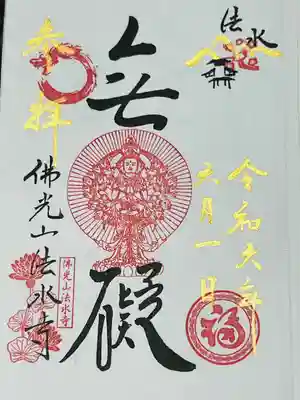 法水
令和六年
六月一日
無礙
福
奉拝
佛光山法水寺
佛光山法水寺